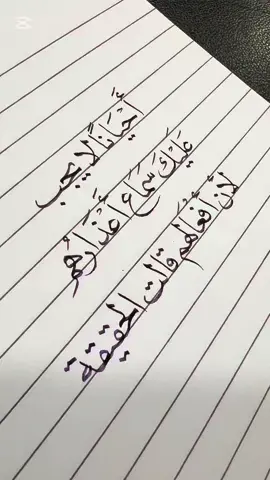 أحْيَاناً لا يجب
عَلَيْكَ سَمَاع أعْذَارهُم
لأنَّ أفْعَالَهُم قالت الحَقِيقَة